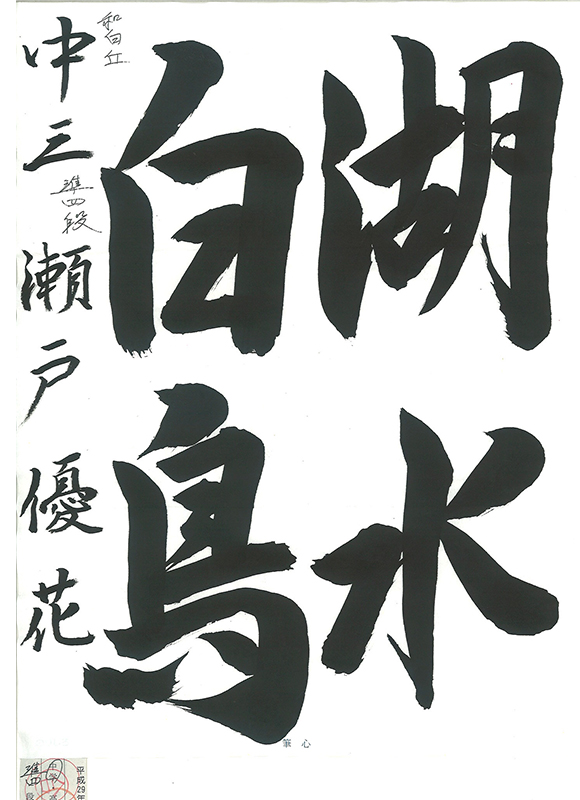 湖水
白鳥
和白丘
中三 瀬戸優花
準四段
心筆
平成29年
準四
段
中学